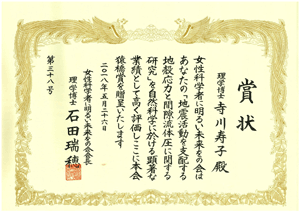 賞状
理学博士 寺川寿子 殿
女性科学者に明るい未来をの会は
あなたの「地震活動を支配する
地殻応力と間隙流体圧に関する
研究」を自然科学に於ける顕著な
業績として高く評価しここに本会
猿橋賞を贈呈いたします
二〇一八年五月二十六日
女性科学者に明るい未来をの会会長
理学博士 石田瑞穂
第三十八号